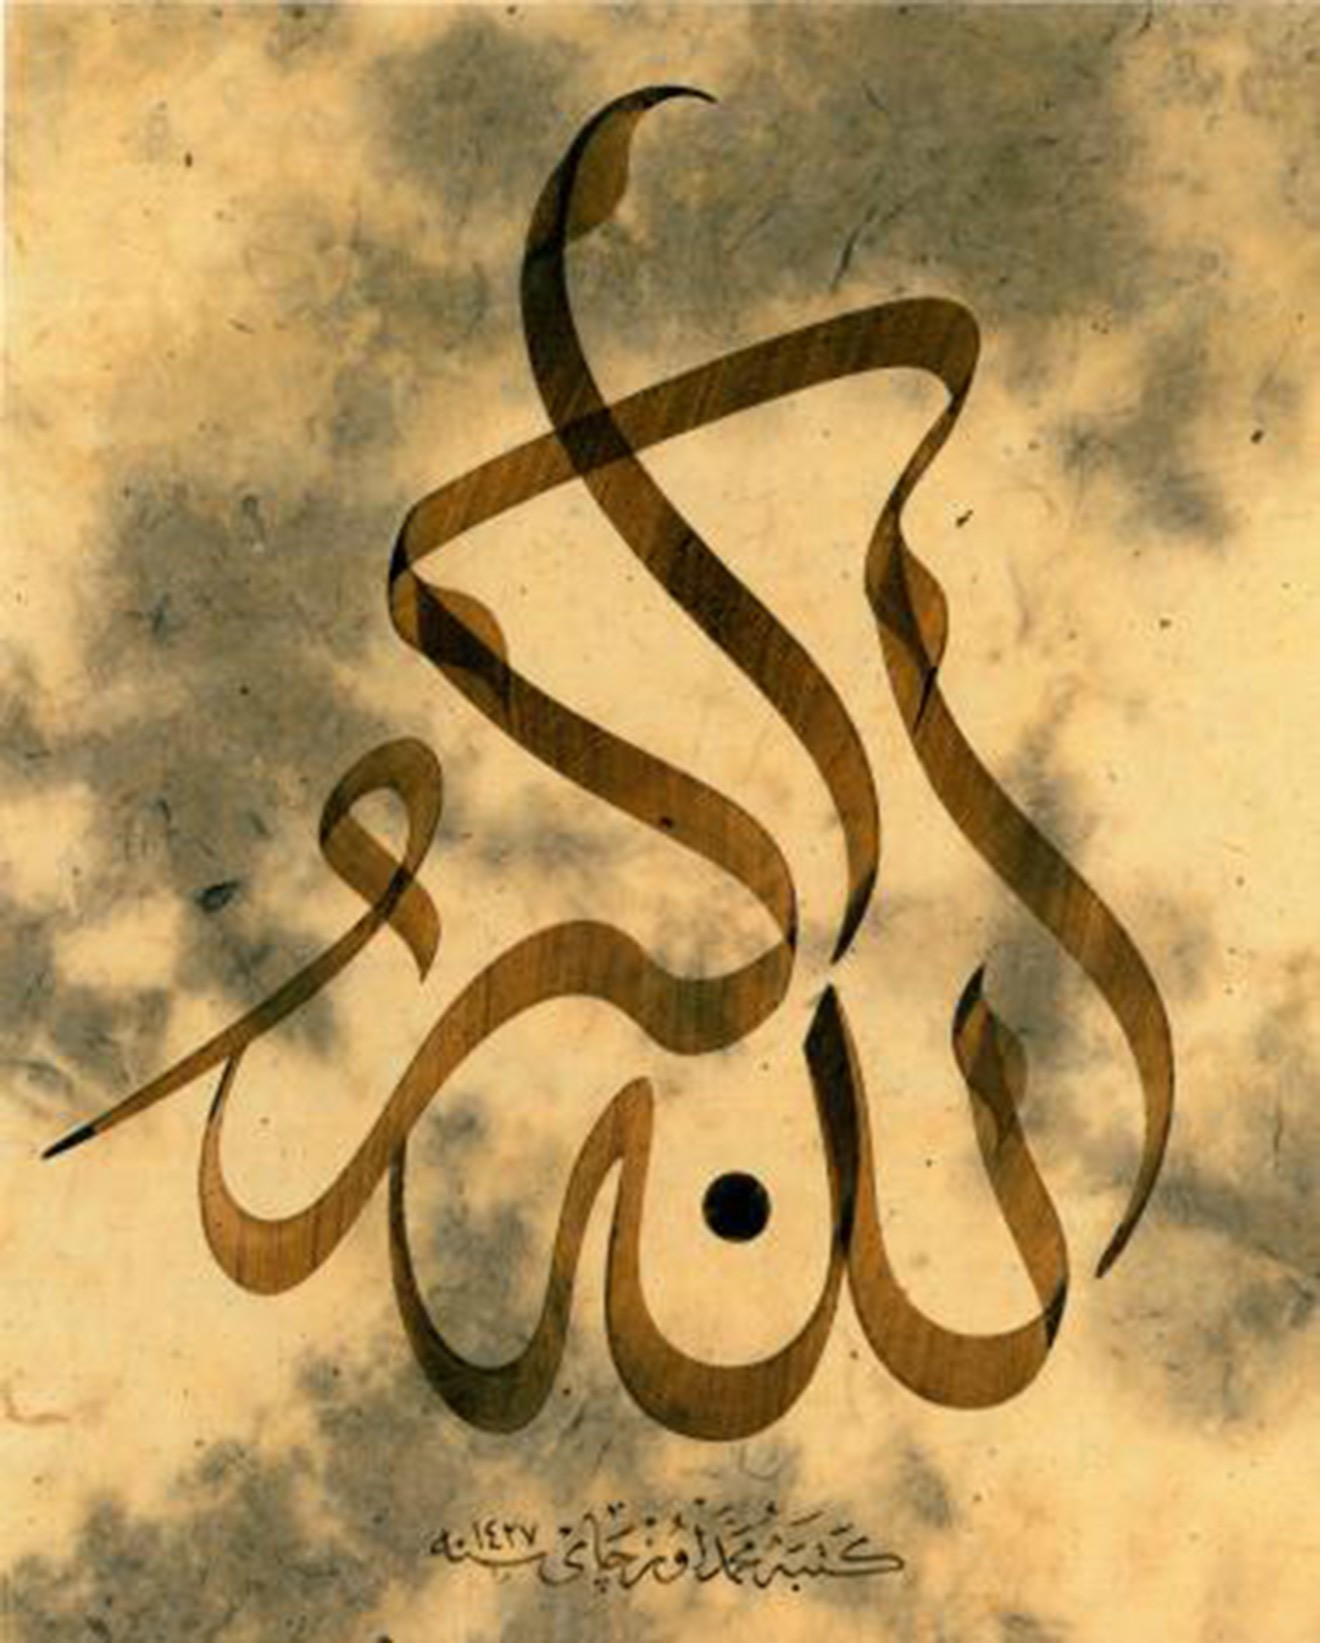 الله اكبر
كَتَبَهُ مُحَمَّد اُوزْچَاىْ سنه ١٤٢٧